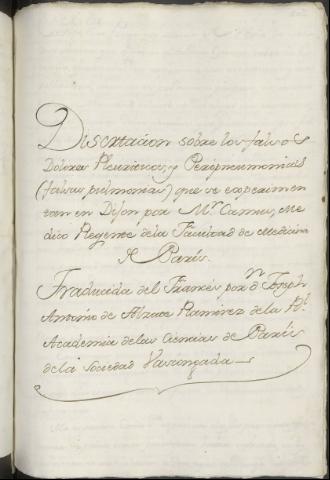 Disertacion sobre los falsos
Dolores Pleuriticos, y Peripneumonias
(falsas pulmonias) que se experimen
tan en Dijon por Mr. Camus, Me
dico Regente de la Facultad de Medicina
de Paris.
Traducida del Francés por dn. Joseph
Antonio de Alzate Ramirez de la Rl.
Academia de las Ciencias de Paris
de la Sociedad Vascongada